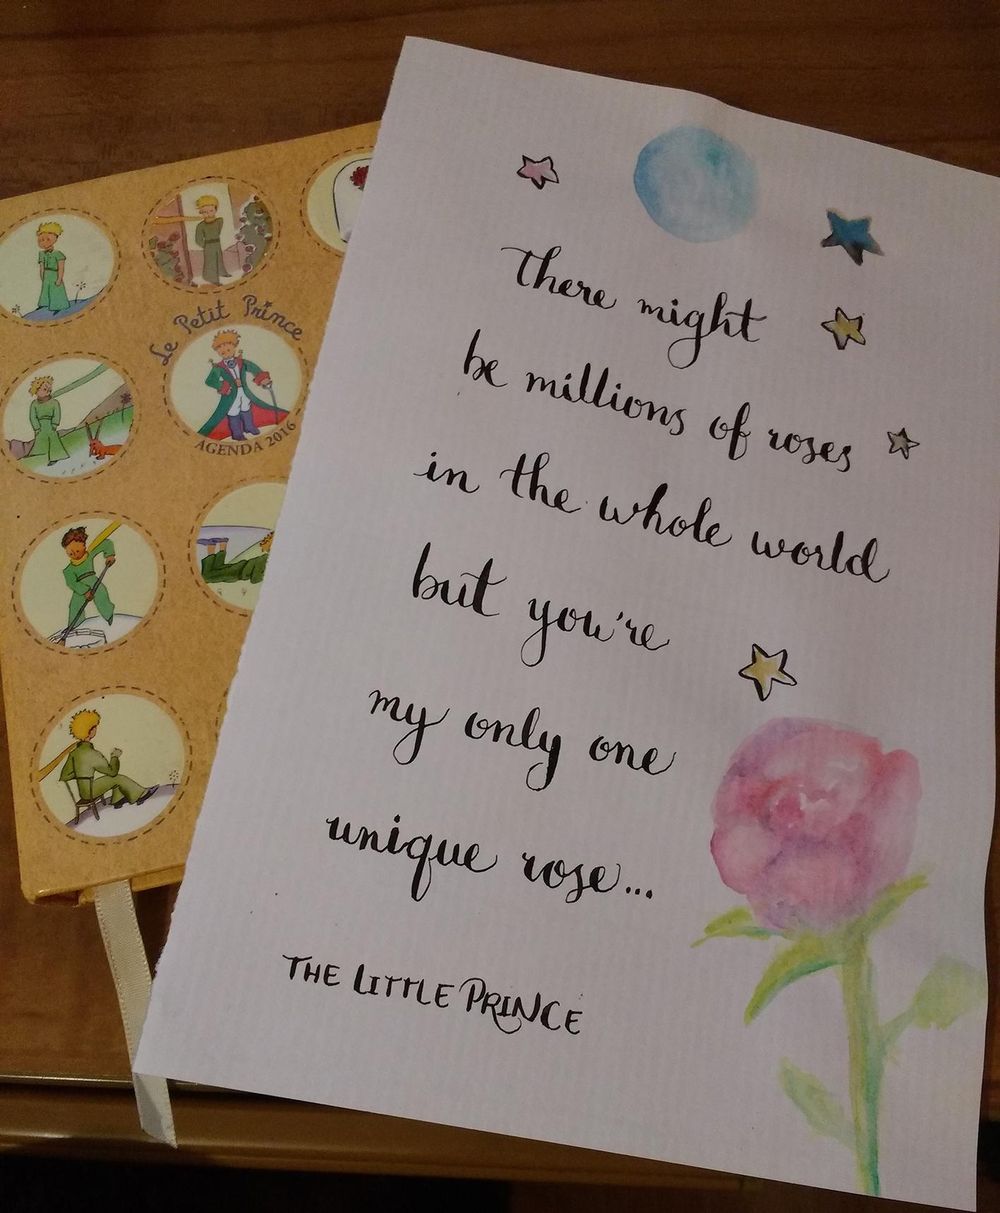 Le Petit Prince
AGENDA 2016
There might
be millions of roses
in the whole world
but you're
my only one
unique rose...
THE LITTLE PRINCE